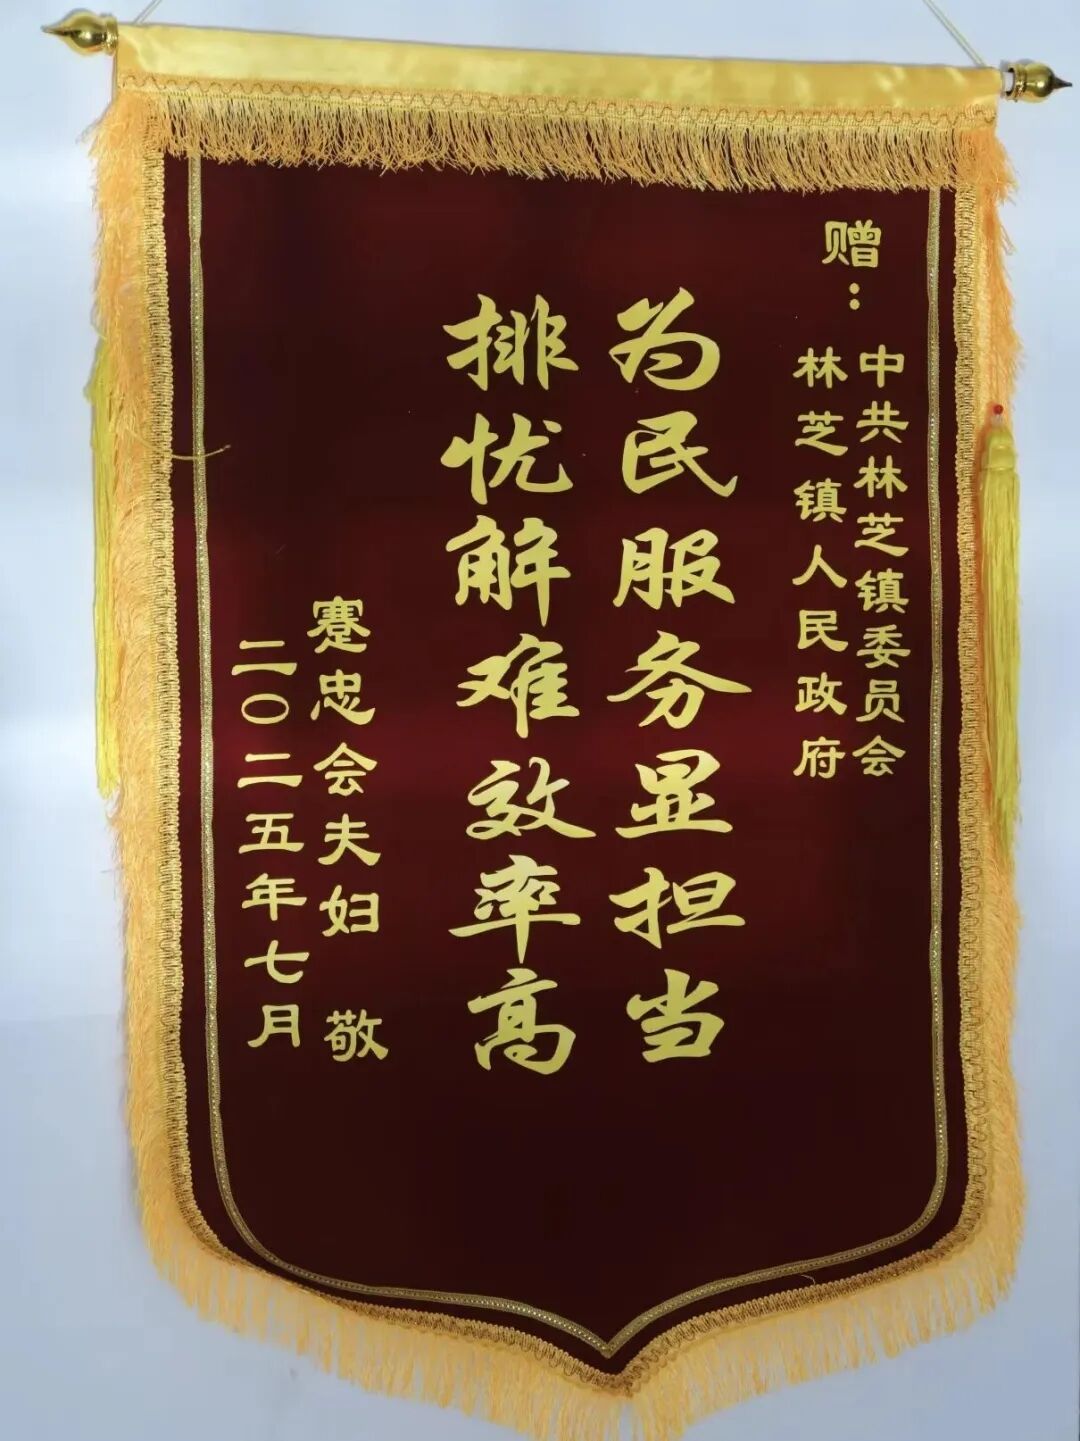 赠：
中共林芝镇委员会
林芝镇人民政府
为民服务显担当
排忧解难效率高
蹇忠会夫妇 敬
二〇二五年七月